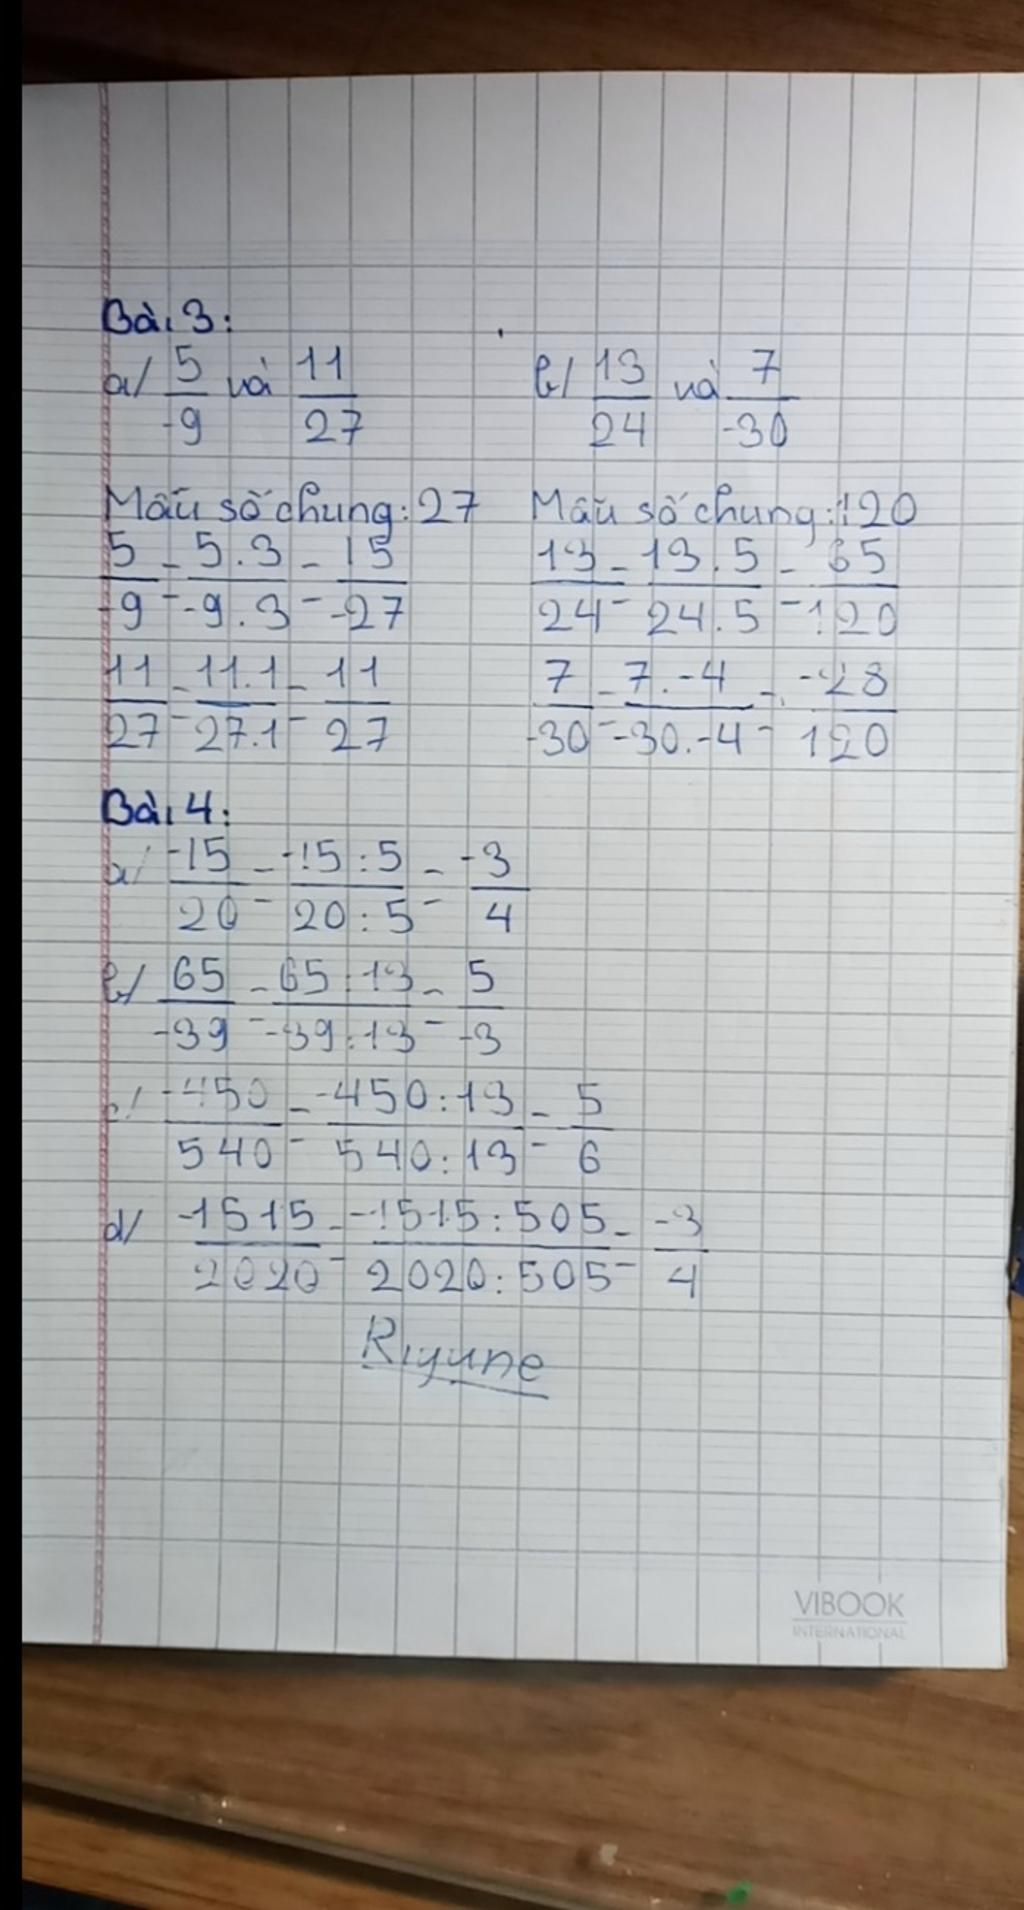 Bài 3:
a/ 5/-9 và 11/27
b/ 13/24 và 7/-30
Mẫu số chung: 27
5/-9 = 5.3/-9.3 = 15/-27
11/27 = 11.1/27.1 = 11/27
Mẫu số chung: 120
13/24 = 13.5/24.5 = 65/120
7/-30 = 7.-4/-30.-4 = -28/120
Bài 4:
a/ -15/20 = -15:5/20:5 = -3/4
b/ 65/-39 = 65:13/-39:13 = 5/-3
c/ -450/540 = -450:13/540:13 = 5/6
d/ -1515/2020 = -1515:505/2020:505 = -3/4
Riyune
VIBOOK
INTERNATIONAL